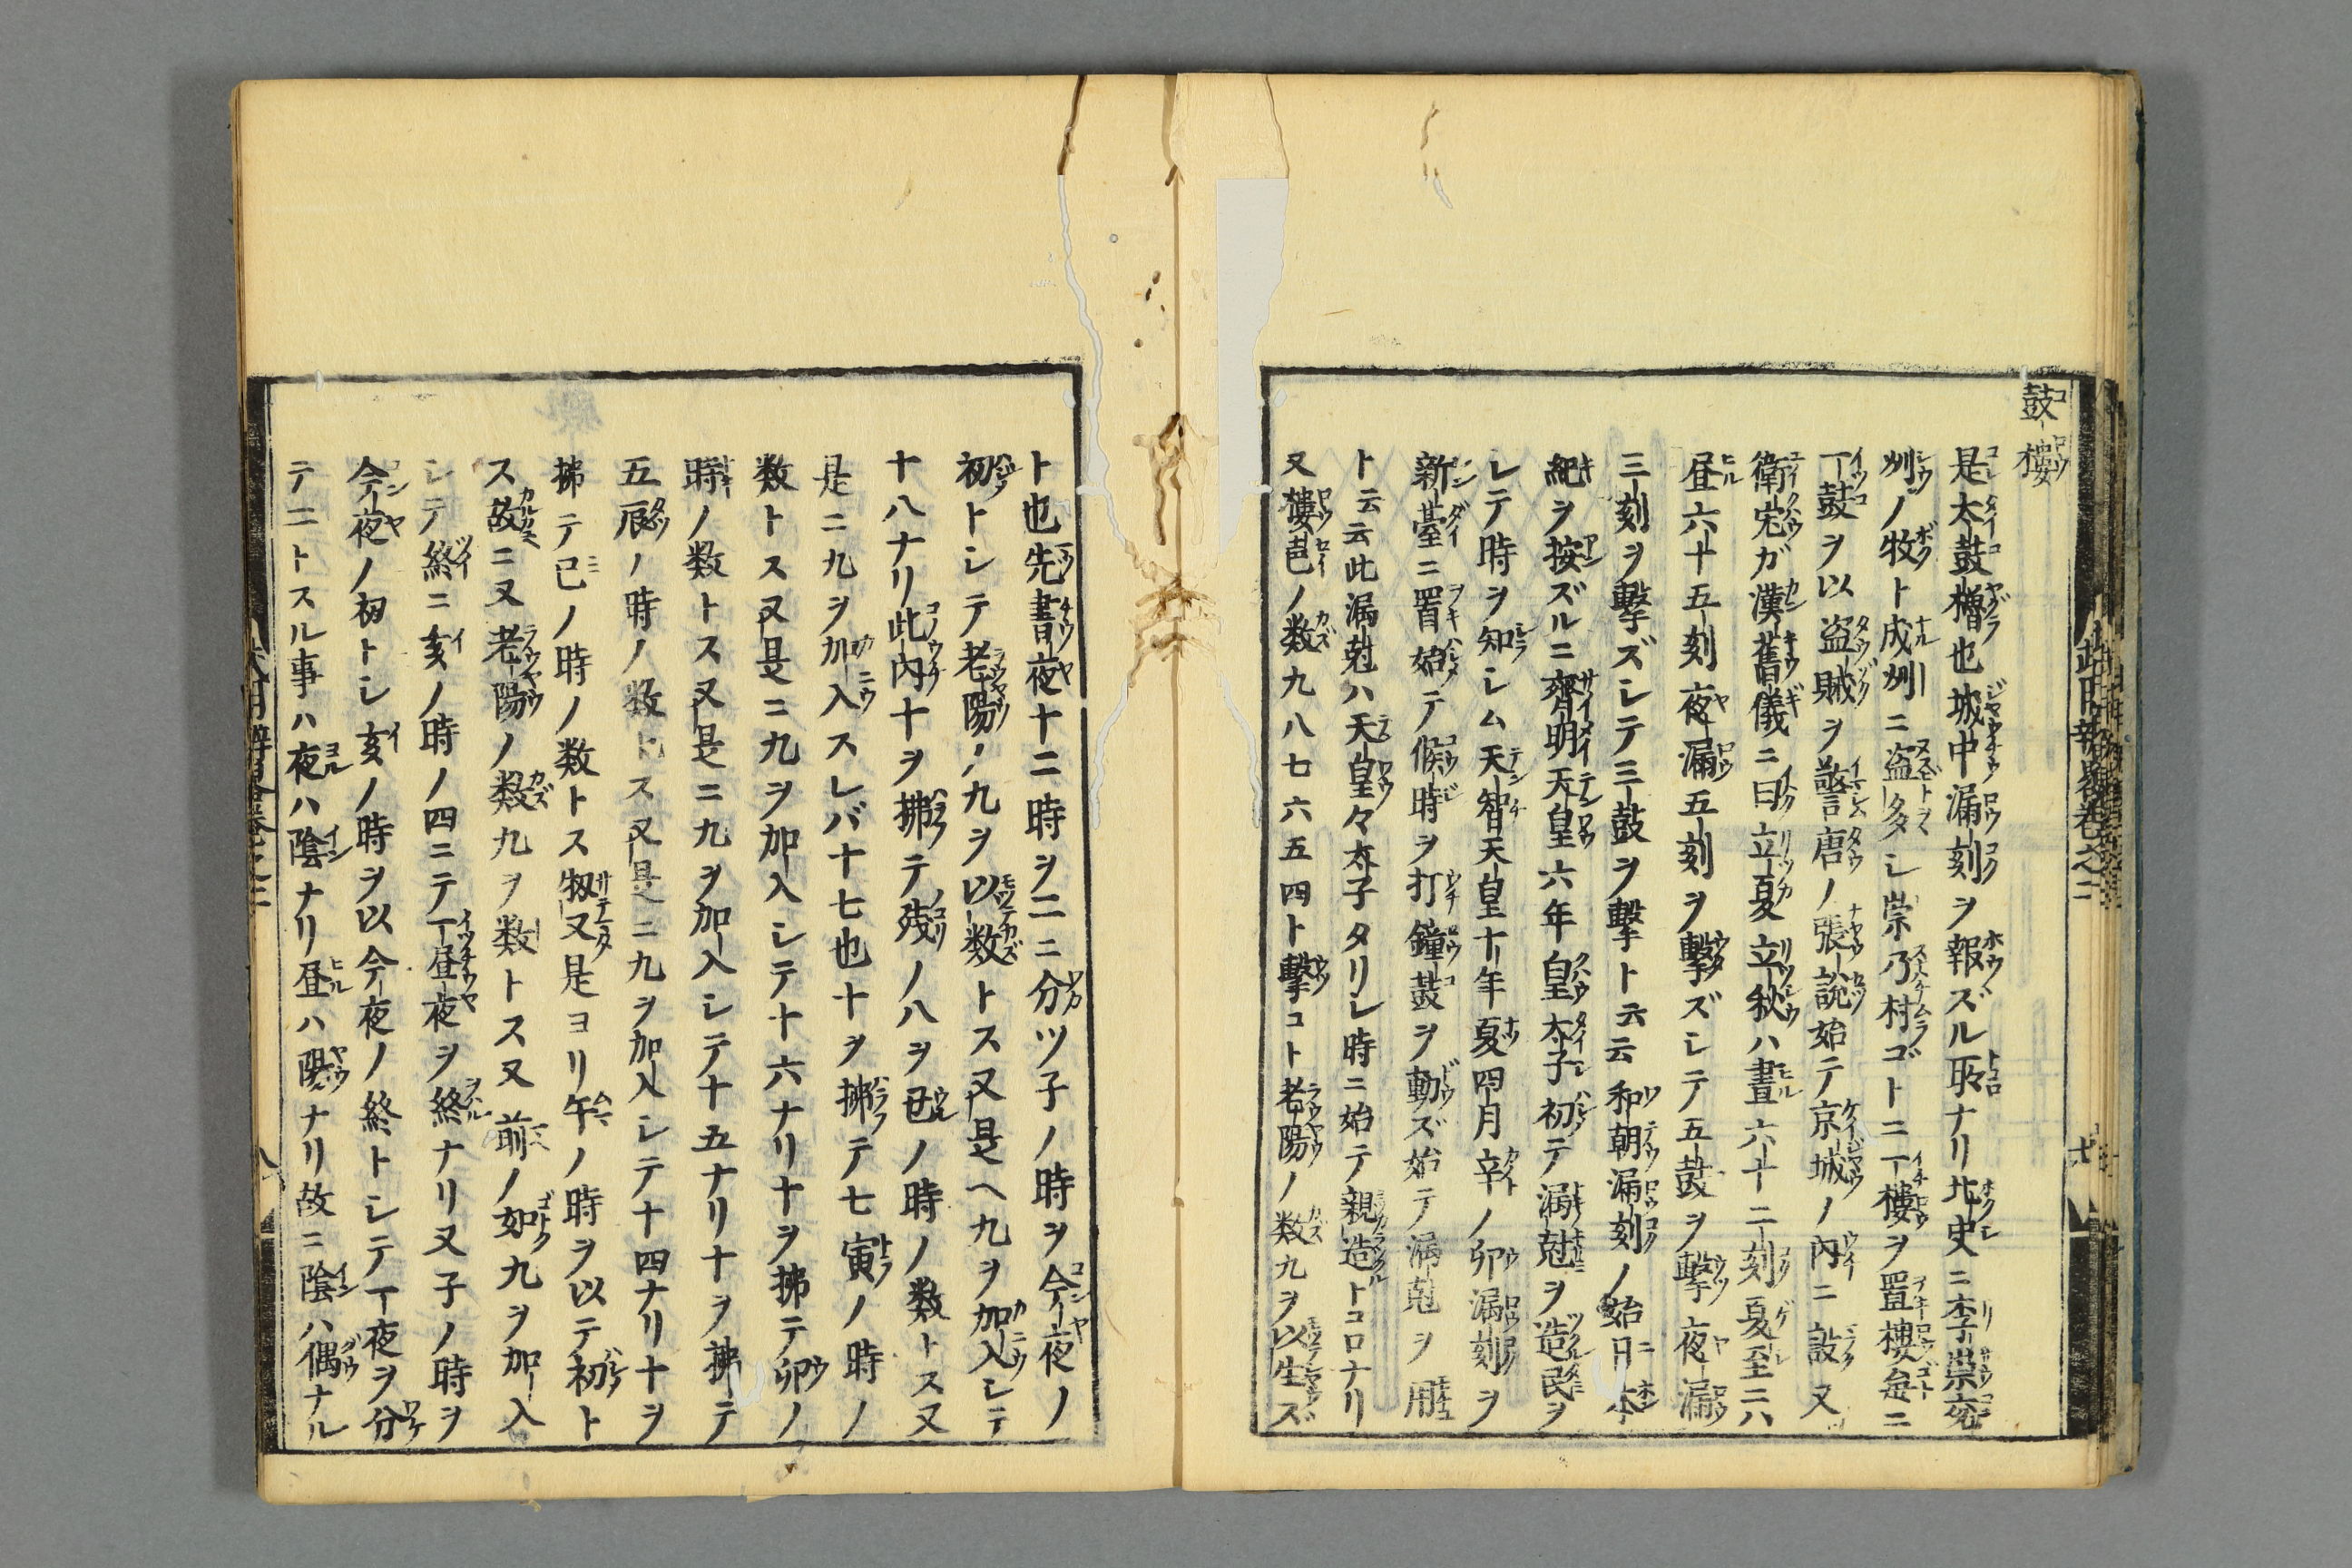 鼓樓
是太鼓櫓也城中漏刻ヲ報ズル所ナリ北史ニ李崇兗
州ノ牧ト成州ニ盗多シ崇乃村ゴトニ一樓ヲ置樓毎ニ
一鼓ヲ以盗賊ヲ警唐ノ張説始テ京城ノ内ニ設又
衛宏ガ漢舊儀ニ曰立夏立秋ハ晝六十二刻夏至ニハ
昼六十五刻夜漏五刻ヲ擊ズシテ五鼓ヲ擊夜漏
三刻ヲ擊ズシテ三鼓ヲ擊ト云云和朝漏刻ノ始日本
紀ヲ按ズルニ齊明天皇六年皇太子初テ漏尅ヲ造民ヲ
シテ時ヲ知シム天智天皇十年夏四月辛ノ卯漏刻ヲ
新臺ニ置始テ候時ヲ打鐘鼓ヲ動ズ始テ漏尅ヲ用
ト云云此漏尅ハ天皇々太子タリシ時ニ始テ親造トコロナリ
又樓邑ノ数九八七六五四ト擊コト老陽ノ数九ヲ以生ズ
ト也先書夜十二時ヲ二ニ分ツ子ノ時ヲ今夜ノ
初トシテ老陽ノ九ヲ以数トス又是ヘ九ヲ加入シテ
十八ナリ此内十ヲ拂テ残ノ八ヲ丑ノ時ノ数トス又
是ニ九ヲ加入スレバ十七也十ヲ拂テ七寅ノ時ノ
数トス又是ニ九ヲ加入シテ十六ナリ十ヲ拂テ卯ノ
時ノ数トス又是ニ九ヲ加入シテ十五ナリ十ヲ拂テ
五辰ノ時ノ数トス又是ニ九ヲ加入シテ十四ナリ十ヲ
拂テ巳ノ時ノ数トス扨又是ヨリ午ノ時ヲ以テ初ト
ス故ニ又老陽ノ数九ヲ数トス又前ノ如九ヲ加入
シテ終ニ亥ノ時ノ四ニテ一昼夜ヲ終ナリ又子ノ時ヲ
今夜ノ初トシ亥ノ時ヲ以今夜ノ終トシテ一夜ヲ分
テ二トスル事ハ夜ハ陰ナリ昼ハ陽ナリ故ニ陰ハ偶ナル